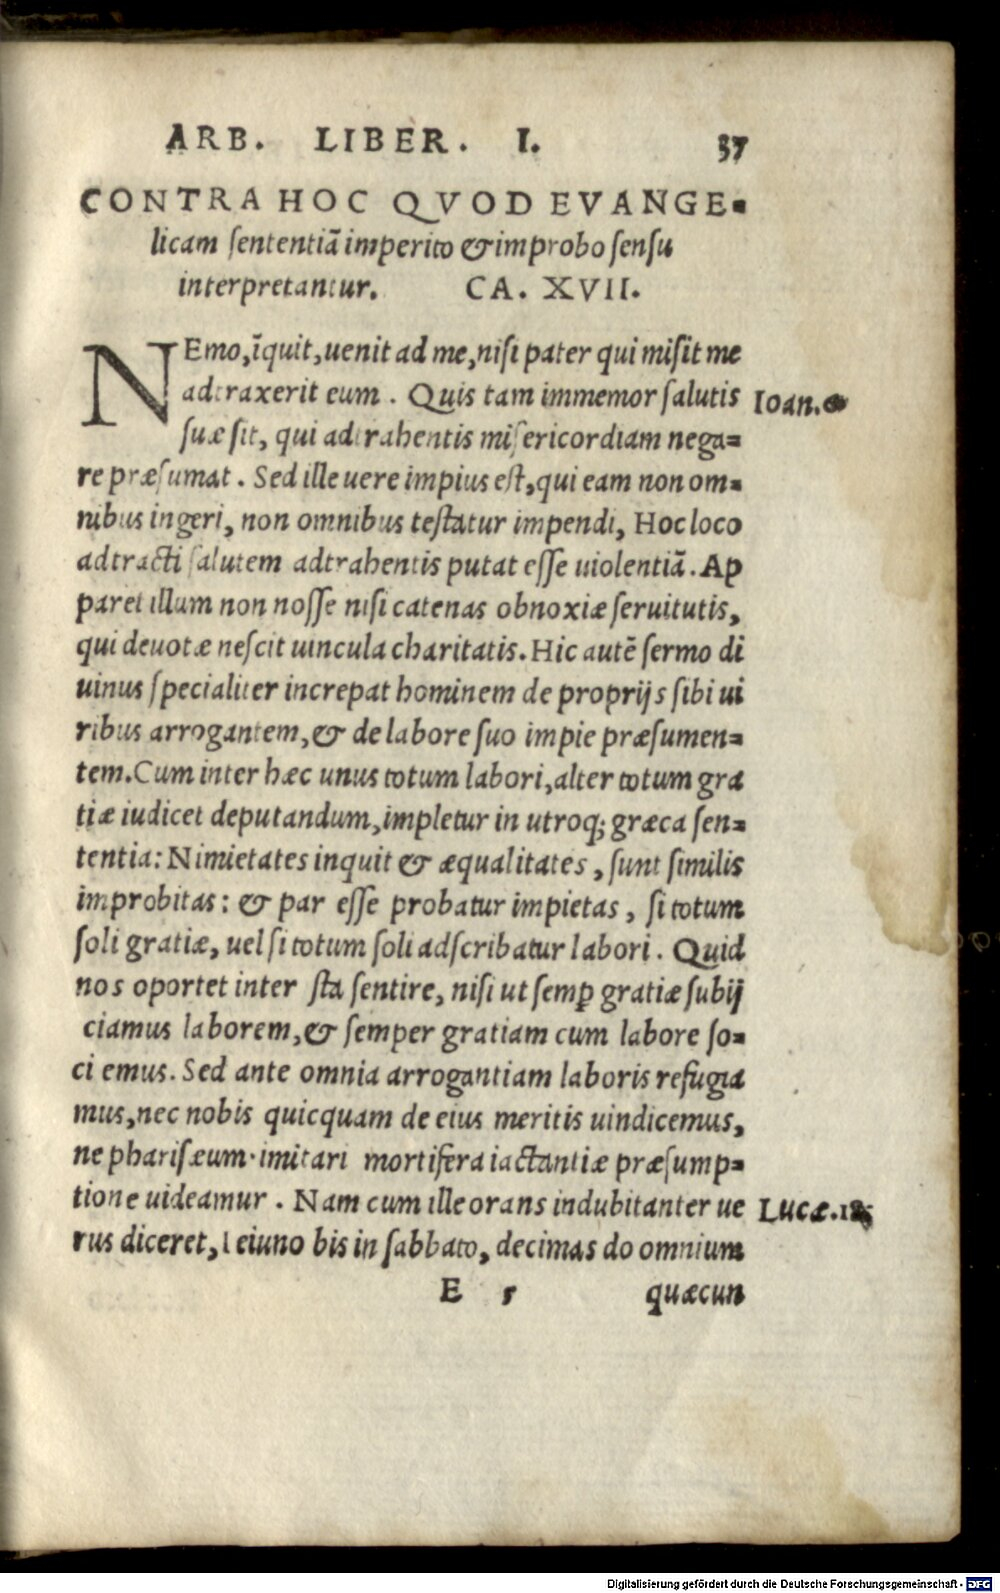 ARB. LIBER. I. 37
CONTRA HOC QVOD EVANGE-
licam sententiā imperito & improbo sensu
interpretantur. CA. XVII.
NEmo, īquit, uenit ad me, nisi pater qui misit me
adtraxerit eum. Quis tam immemor salutis
Ioan.
suæ sit, qui adtrahentis misericordiam nega=
re præsumat. Sed ille uere impius est, qui eam non om=
nibus ingeri, non omnibus testatur impendi, Hoc loco
adtracti salutem adtrahentis putat esse uiolentiā. Ap
paret illum non nosse nisi catenas obnoxiæ seruitutis,
qui deuotæ nescit uincula charitatis. Hic autē sermo di
uinus specialiter increpat hominem de proprijs sibi ui
ribus arrogantem, & de labore suo impie præsumen=
tem. Cum inter hæc unus totum labori, alter totum gra
tiæ iudicet deputandum, impletur in utroq; græca sen=
tentia: Nimietates inquit & æqualitates, sunt similis
improbitas: & par esse probatur impietas, si totum
soli gratiæ, uel si totum soli adscribatur labori. Quid
nos oportet inter sta sentire, nisi ut semp̱ gratiæ subij
ciamus laborem, & semper gratiam cum labore so=
ci emus. Sed ante omnia arrogantiam laboris refugia
mus, nec nobis quicquam de eius meritis uindicemus,
ne pharisæum imitari mortifera iactantiæ præsump=
tione uideamur. Nam cum ille orans indubitanter ue
Lucæ. 18
rus diceret, Ieiuno bis in sabbato, decimas do omnium
E 5 quæcun
Digitalisierung gefördert durch die Deutsche Forschungsgemeinschaft - DFG